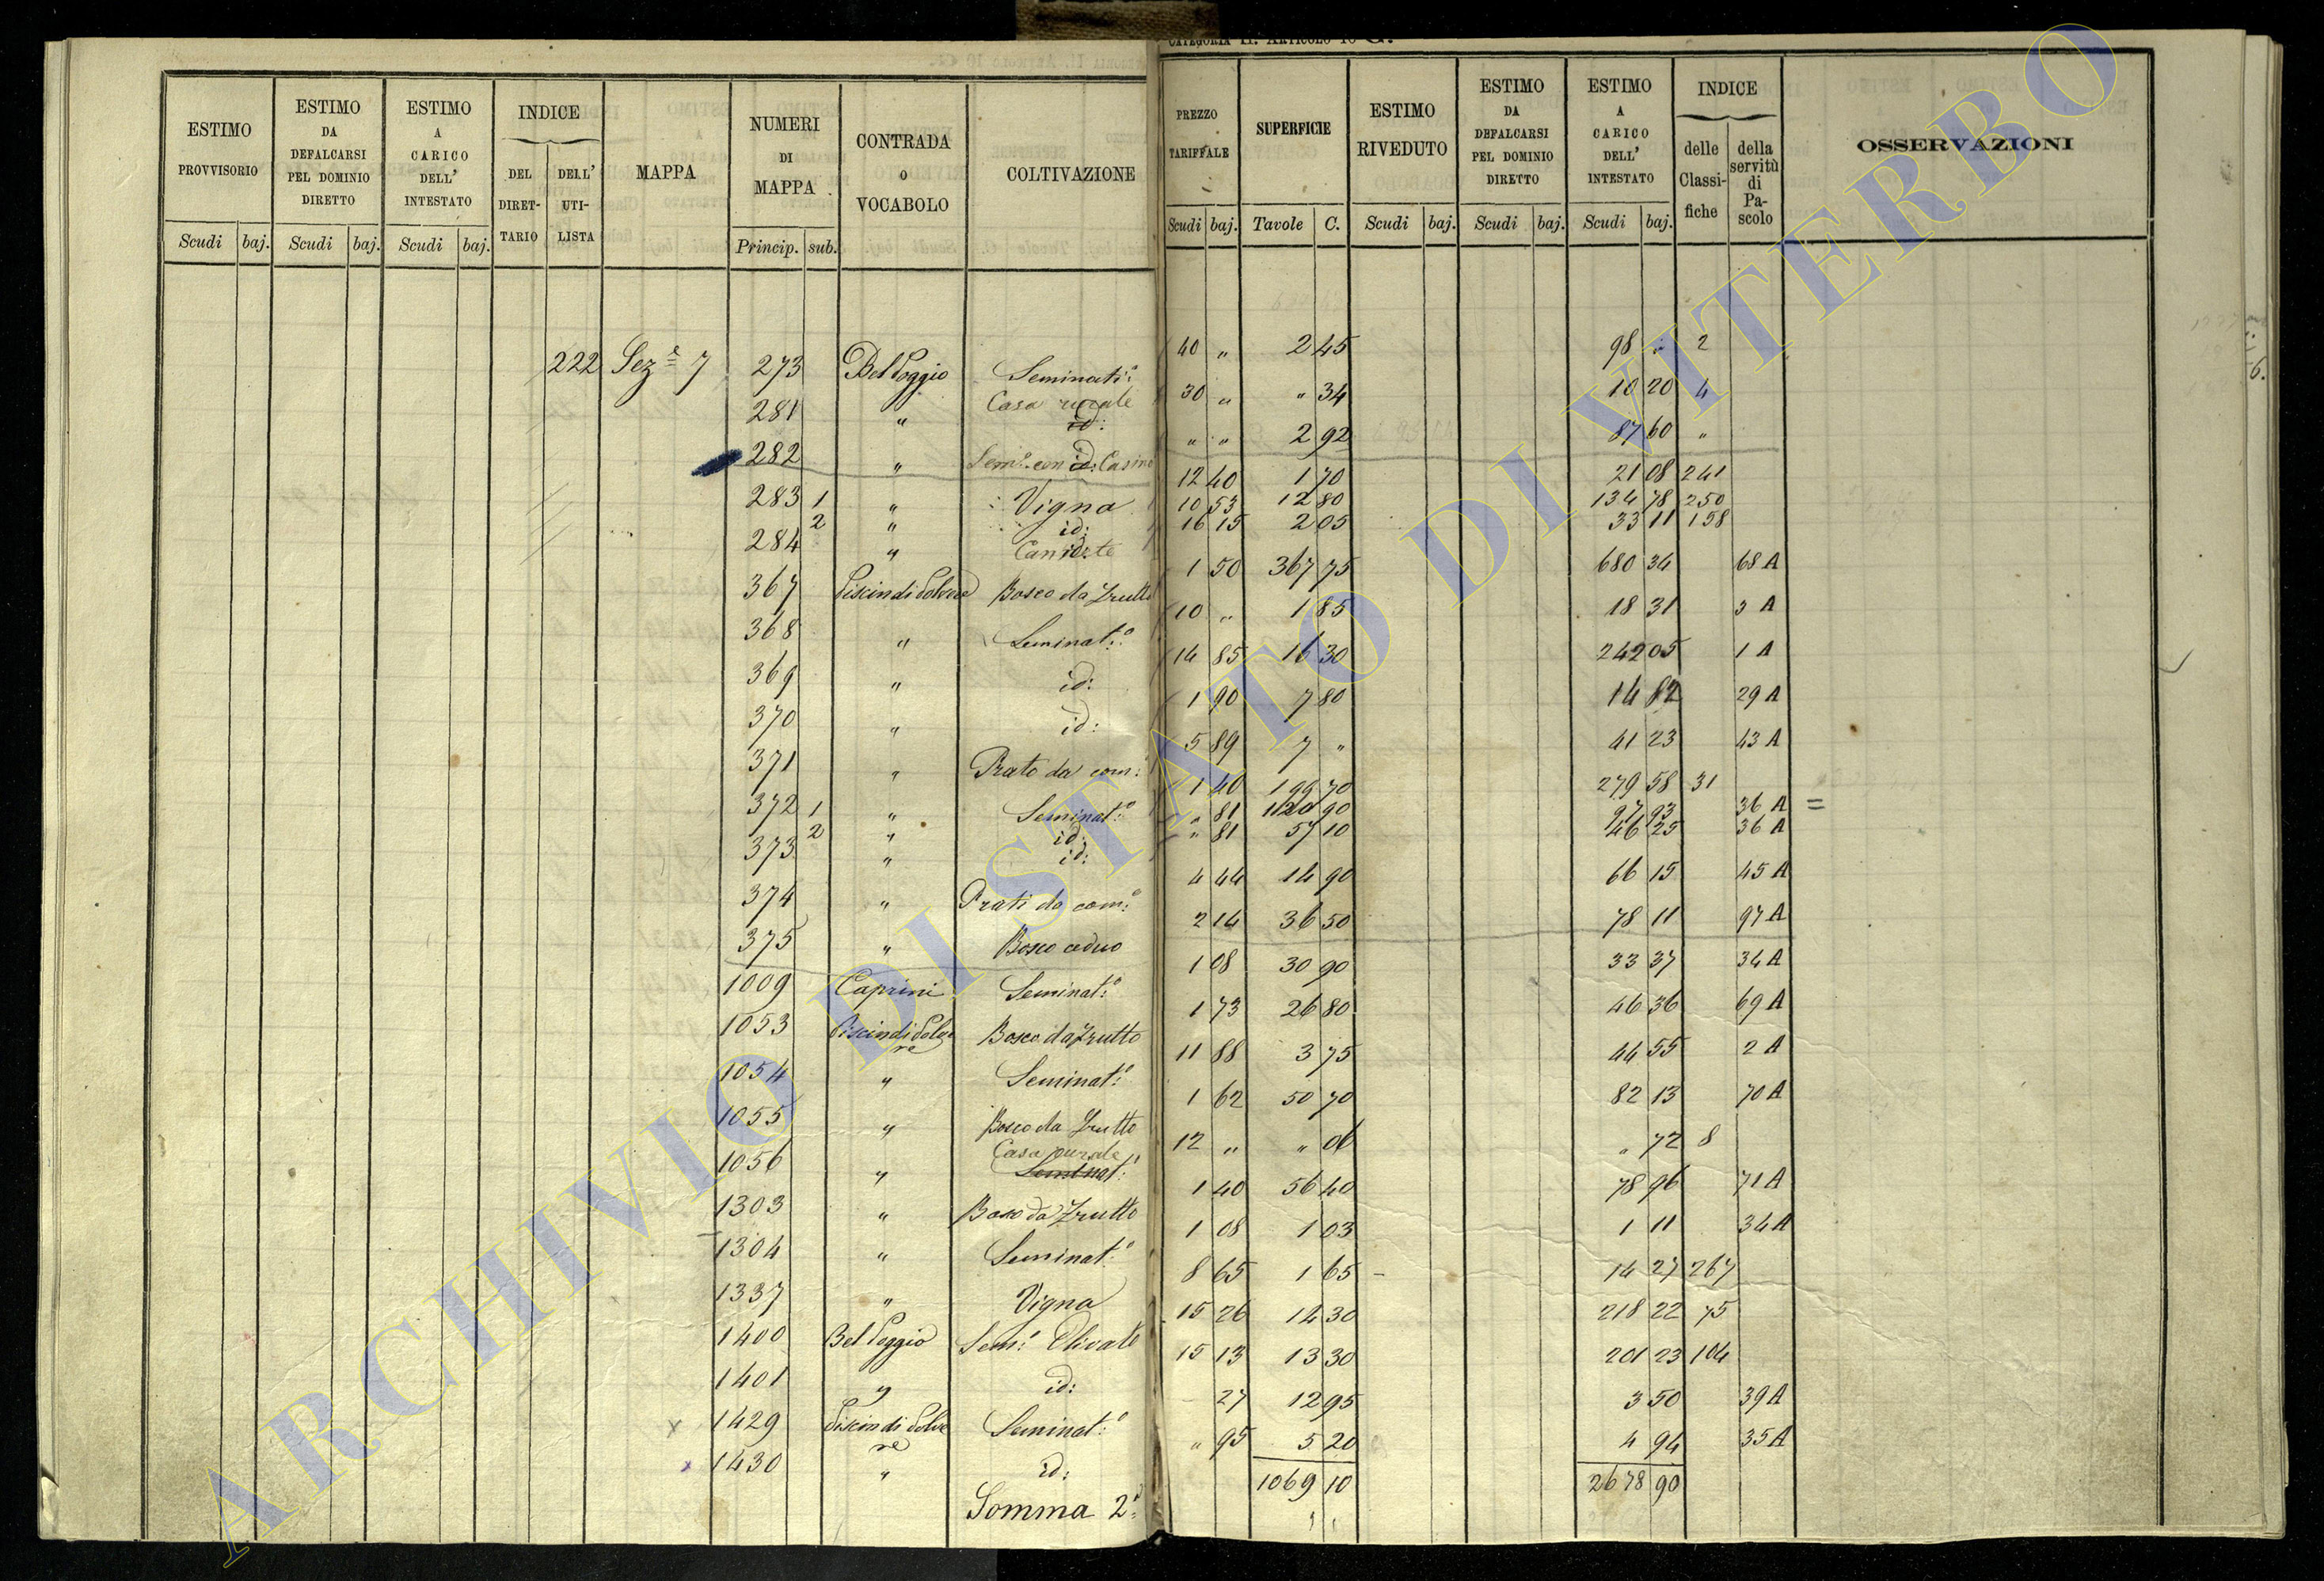 CATEGORIA II. ARTICOLO 10 G.
ESTIMO PROVVISORIO | ESTIMO DA DEFALCARSI PEL DOMINIO DIRETTO | ESTIMO A CARICO DELL' INTESTATO | INDICE | MAPPA | NUMERI DI MAPPA | CONTRADA O VOCABOLO | COLTIVAZIONE | PREZZO TARIFFALE | SUPERFICIE | ESTIMO RIVEDUTO | ESTIMO DA DEFALCARSI PEL DOMINIO DIRETTO | ESTIMO A CARICO DELL' INTESTATO | INDICE | OSSERVAZIONI
DEL DIRET-TARIO | DELL' UTI-LISTA | delle Classi-fiche | della servitù di Pa-scolo
Scudi | baj. | Scudi | baj. | Scudi | baj. | Princip. | sub. | Scudi | baj. | Tavole | C. | Scudi | baj. | Scudi | baj. | Scudi | baj.
222 Sez.e 7 273 Bel Poggio Seminati.o 40 " 2 45 98 " 2
281 " Casa rurale id: 30 " " 34 10 20 4
282 " Sem.o con id: Casino " " 2 92 87 60 "
283 1 " Vigna 12 40 1 70 21 08 241
2 " id: 10 53 12 80 134 78 250
284 " Canneto 16 15 2 05 33 11 158
367 Piscin di Polvere Bosco da frutto 1 50 367 75 680 34 68 A
368 " Seminat.o 10 " 1 85 18 31 3 A
369 " id: 14 85 16 30 242 05 1 A
370 " id: 1 90 7 80 14 82 29 A
371 " Prato da com: 5 89 7 " 41 23 43 A
372 1 " Seminat.o 1 40 199 70 279 58 31
2 " id: " 81 120 90 97 93 36 A =
373 " id: " 81 57 10 46 25 36 A
374 " Prati da com.o 4 44 14 90 66 15 45 A
375 " Bosco ceduo 2 14 36 50 78 11 97 A
1009 Caprini Seminat.o 1 08 30 90 33 37 34 A
1053 Piscin di Polvere Bosco da frutto 1 73 26 80 46 36 69 A
1054 " Seminat.o 11 88 3 75 44 55 2 A
1055 " Bosco da frutto 1 62 50 70 82 13 70 A
1056 " Casa rurale Seminat.o 12 " " 06 " 72 8
1303 " Bosco da frutto 1 40 56 40 78 96 71 A
1304 " Seminat.o 1 08 1 03 1 11 34 A
1337 " Vigna 8 65 1 65 14 27 267
1400 Bel Poggio Sem.o Olivato 15 26 14 30 218 22 75
1401 " id: 15 13 13 30 201 23 104
x 1429 Piscin di Polvere Seminat.o 27 12 95 3 50 39 A
x 1430 " id: " 95 5 20 4 94 35 A
Somma 2.a 1069 10 2678 90
6.
ARCHIVIO DI STATO DI VITERBO